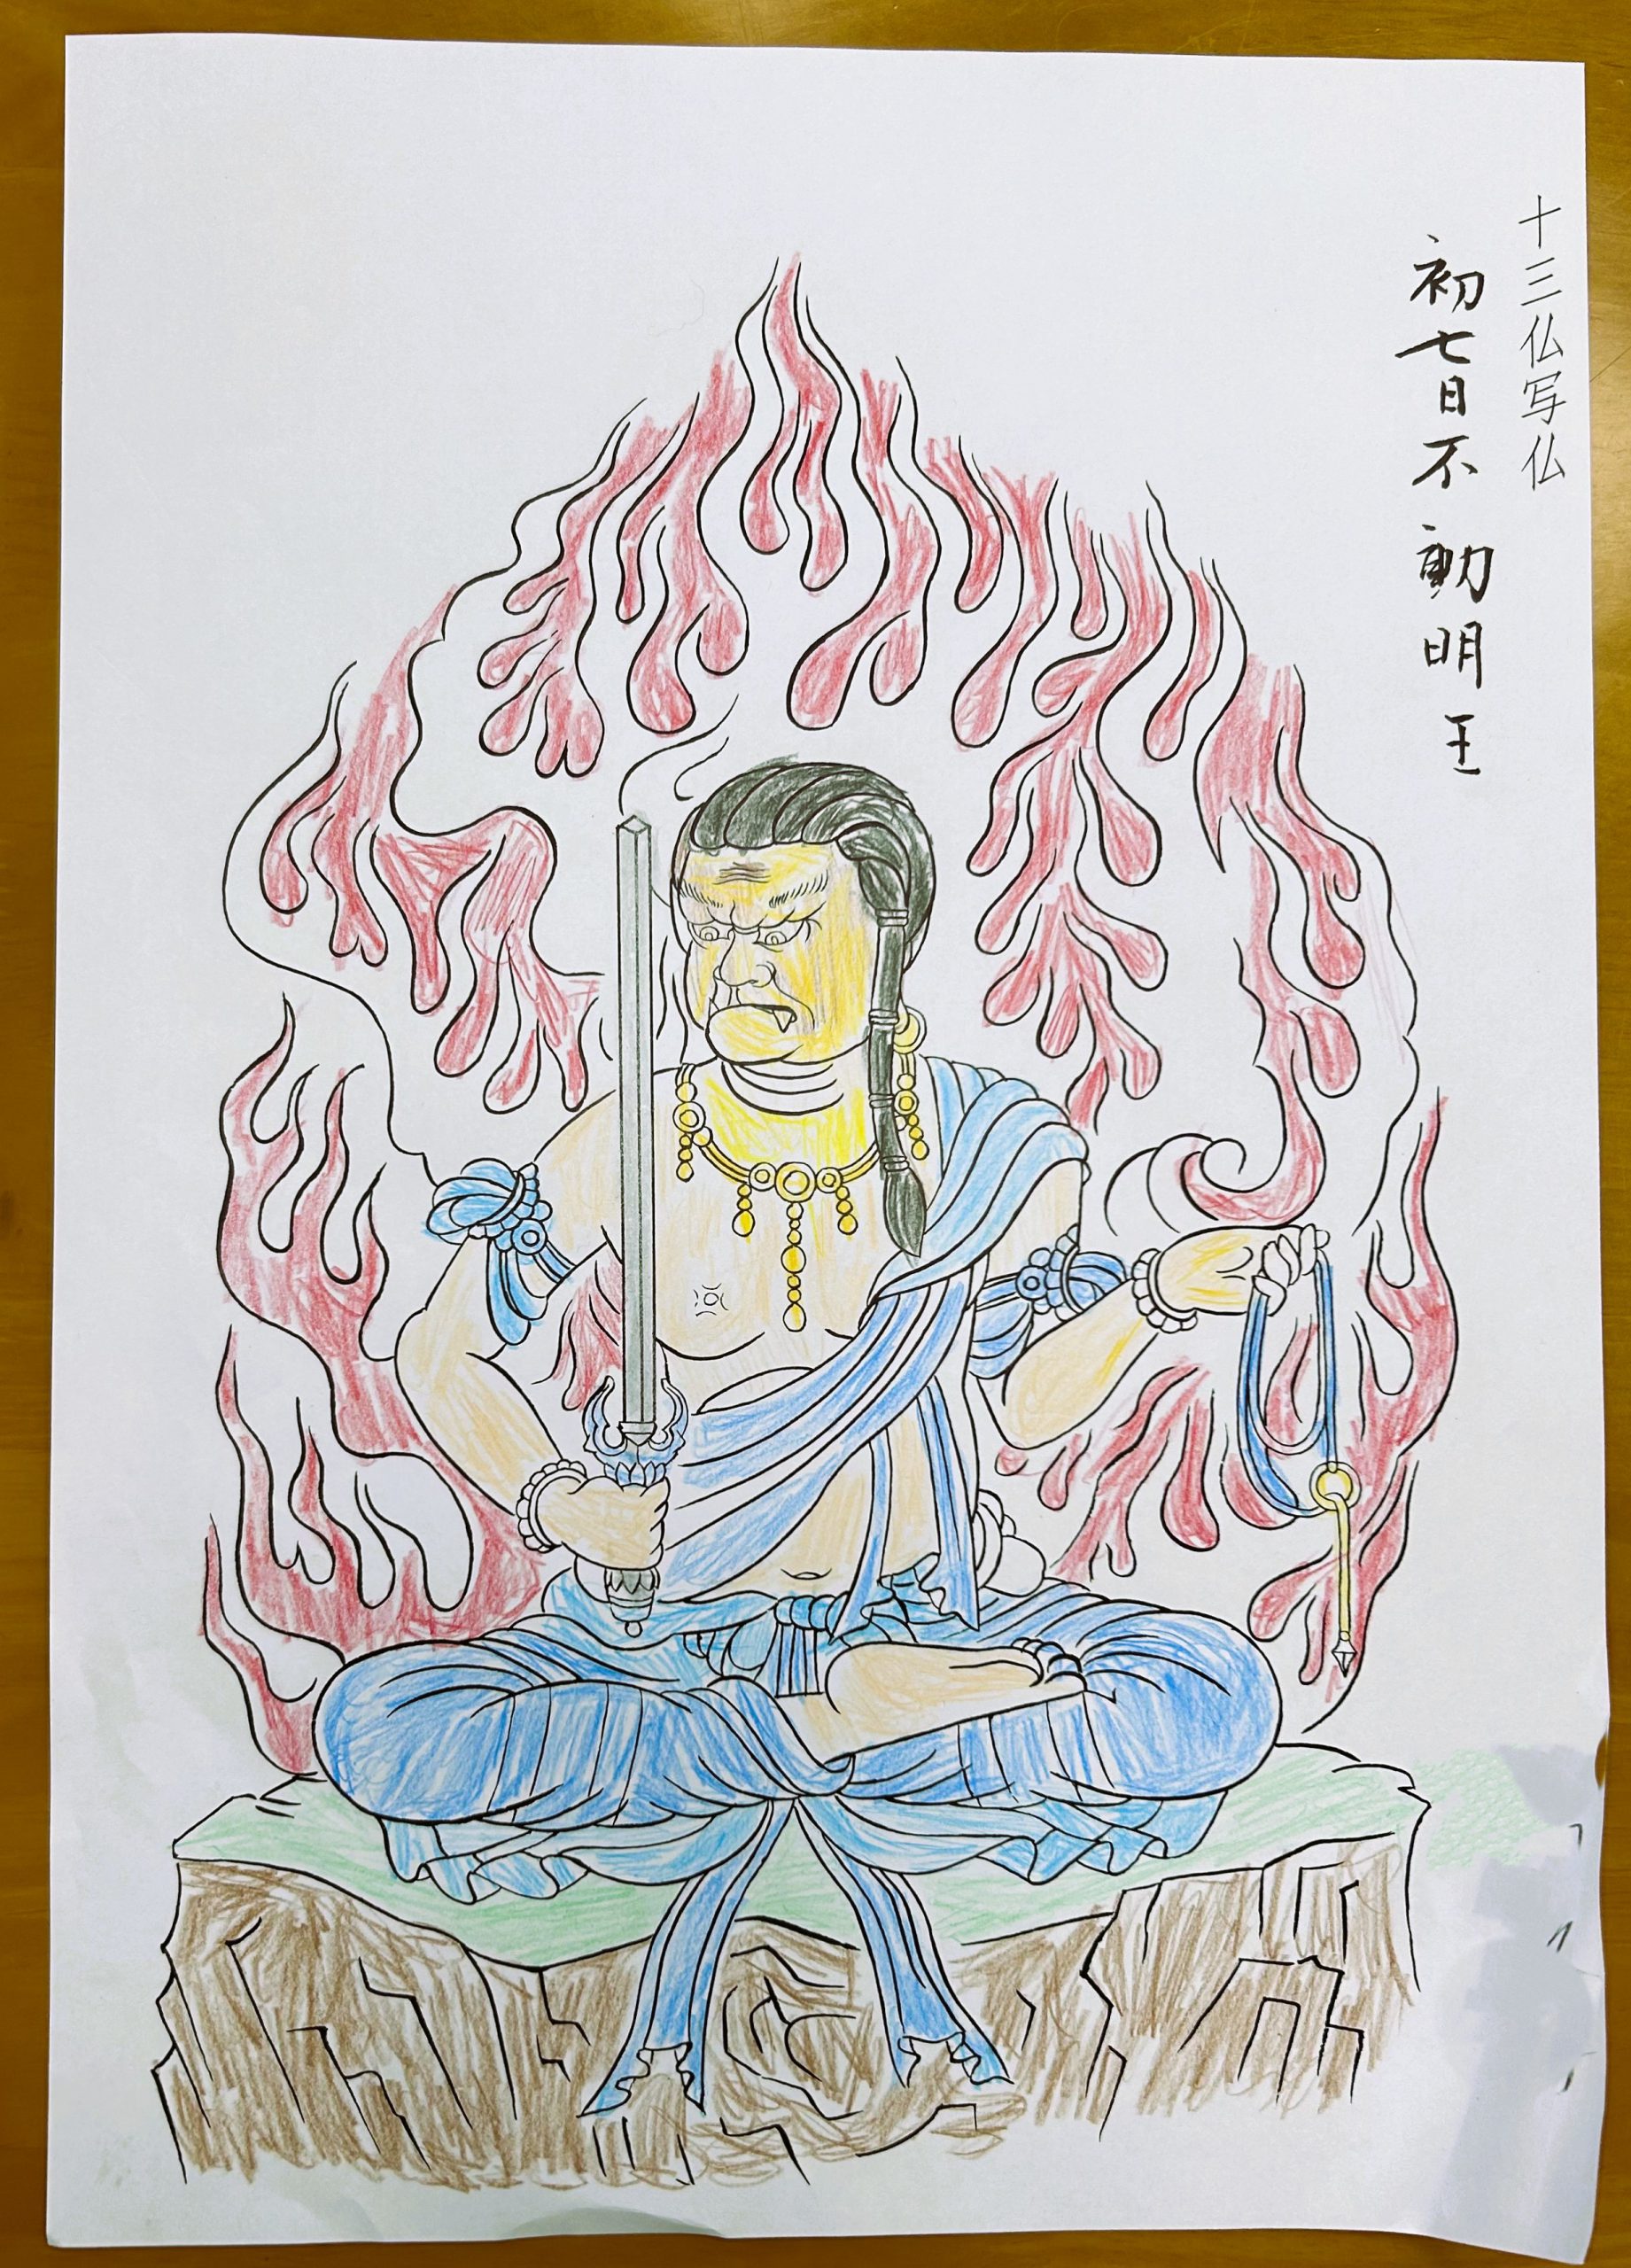 十三仏写仏
初七日不動明王